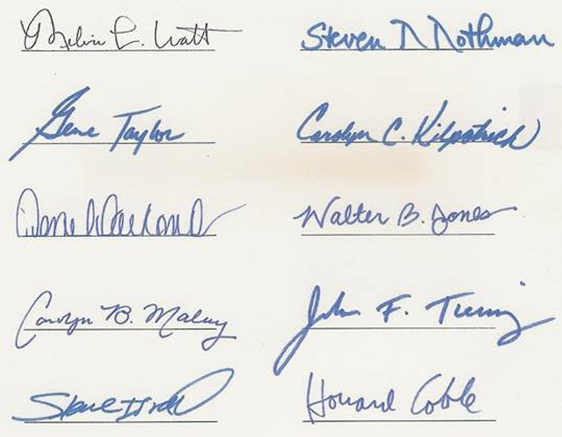 Melvin L. Watt
Steven R Rothman
Gene Taylor
Carolyn C. Kilpatrick
Walter B. Jones
Carolyn B. Maloney
John F. Tierney
Steve Israel
Howard Coble